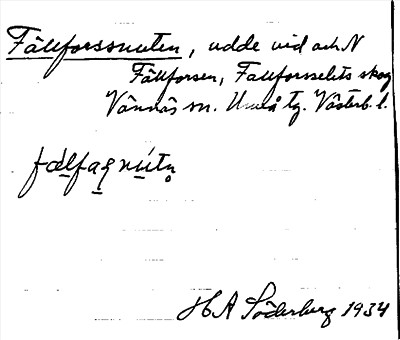 Fällforssnuten, udde vid och N
Fällforsen, Fallforsselets skog
Vännäs sn. Umeå tg. Västerb. l.
H A Söderberg 1934